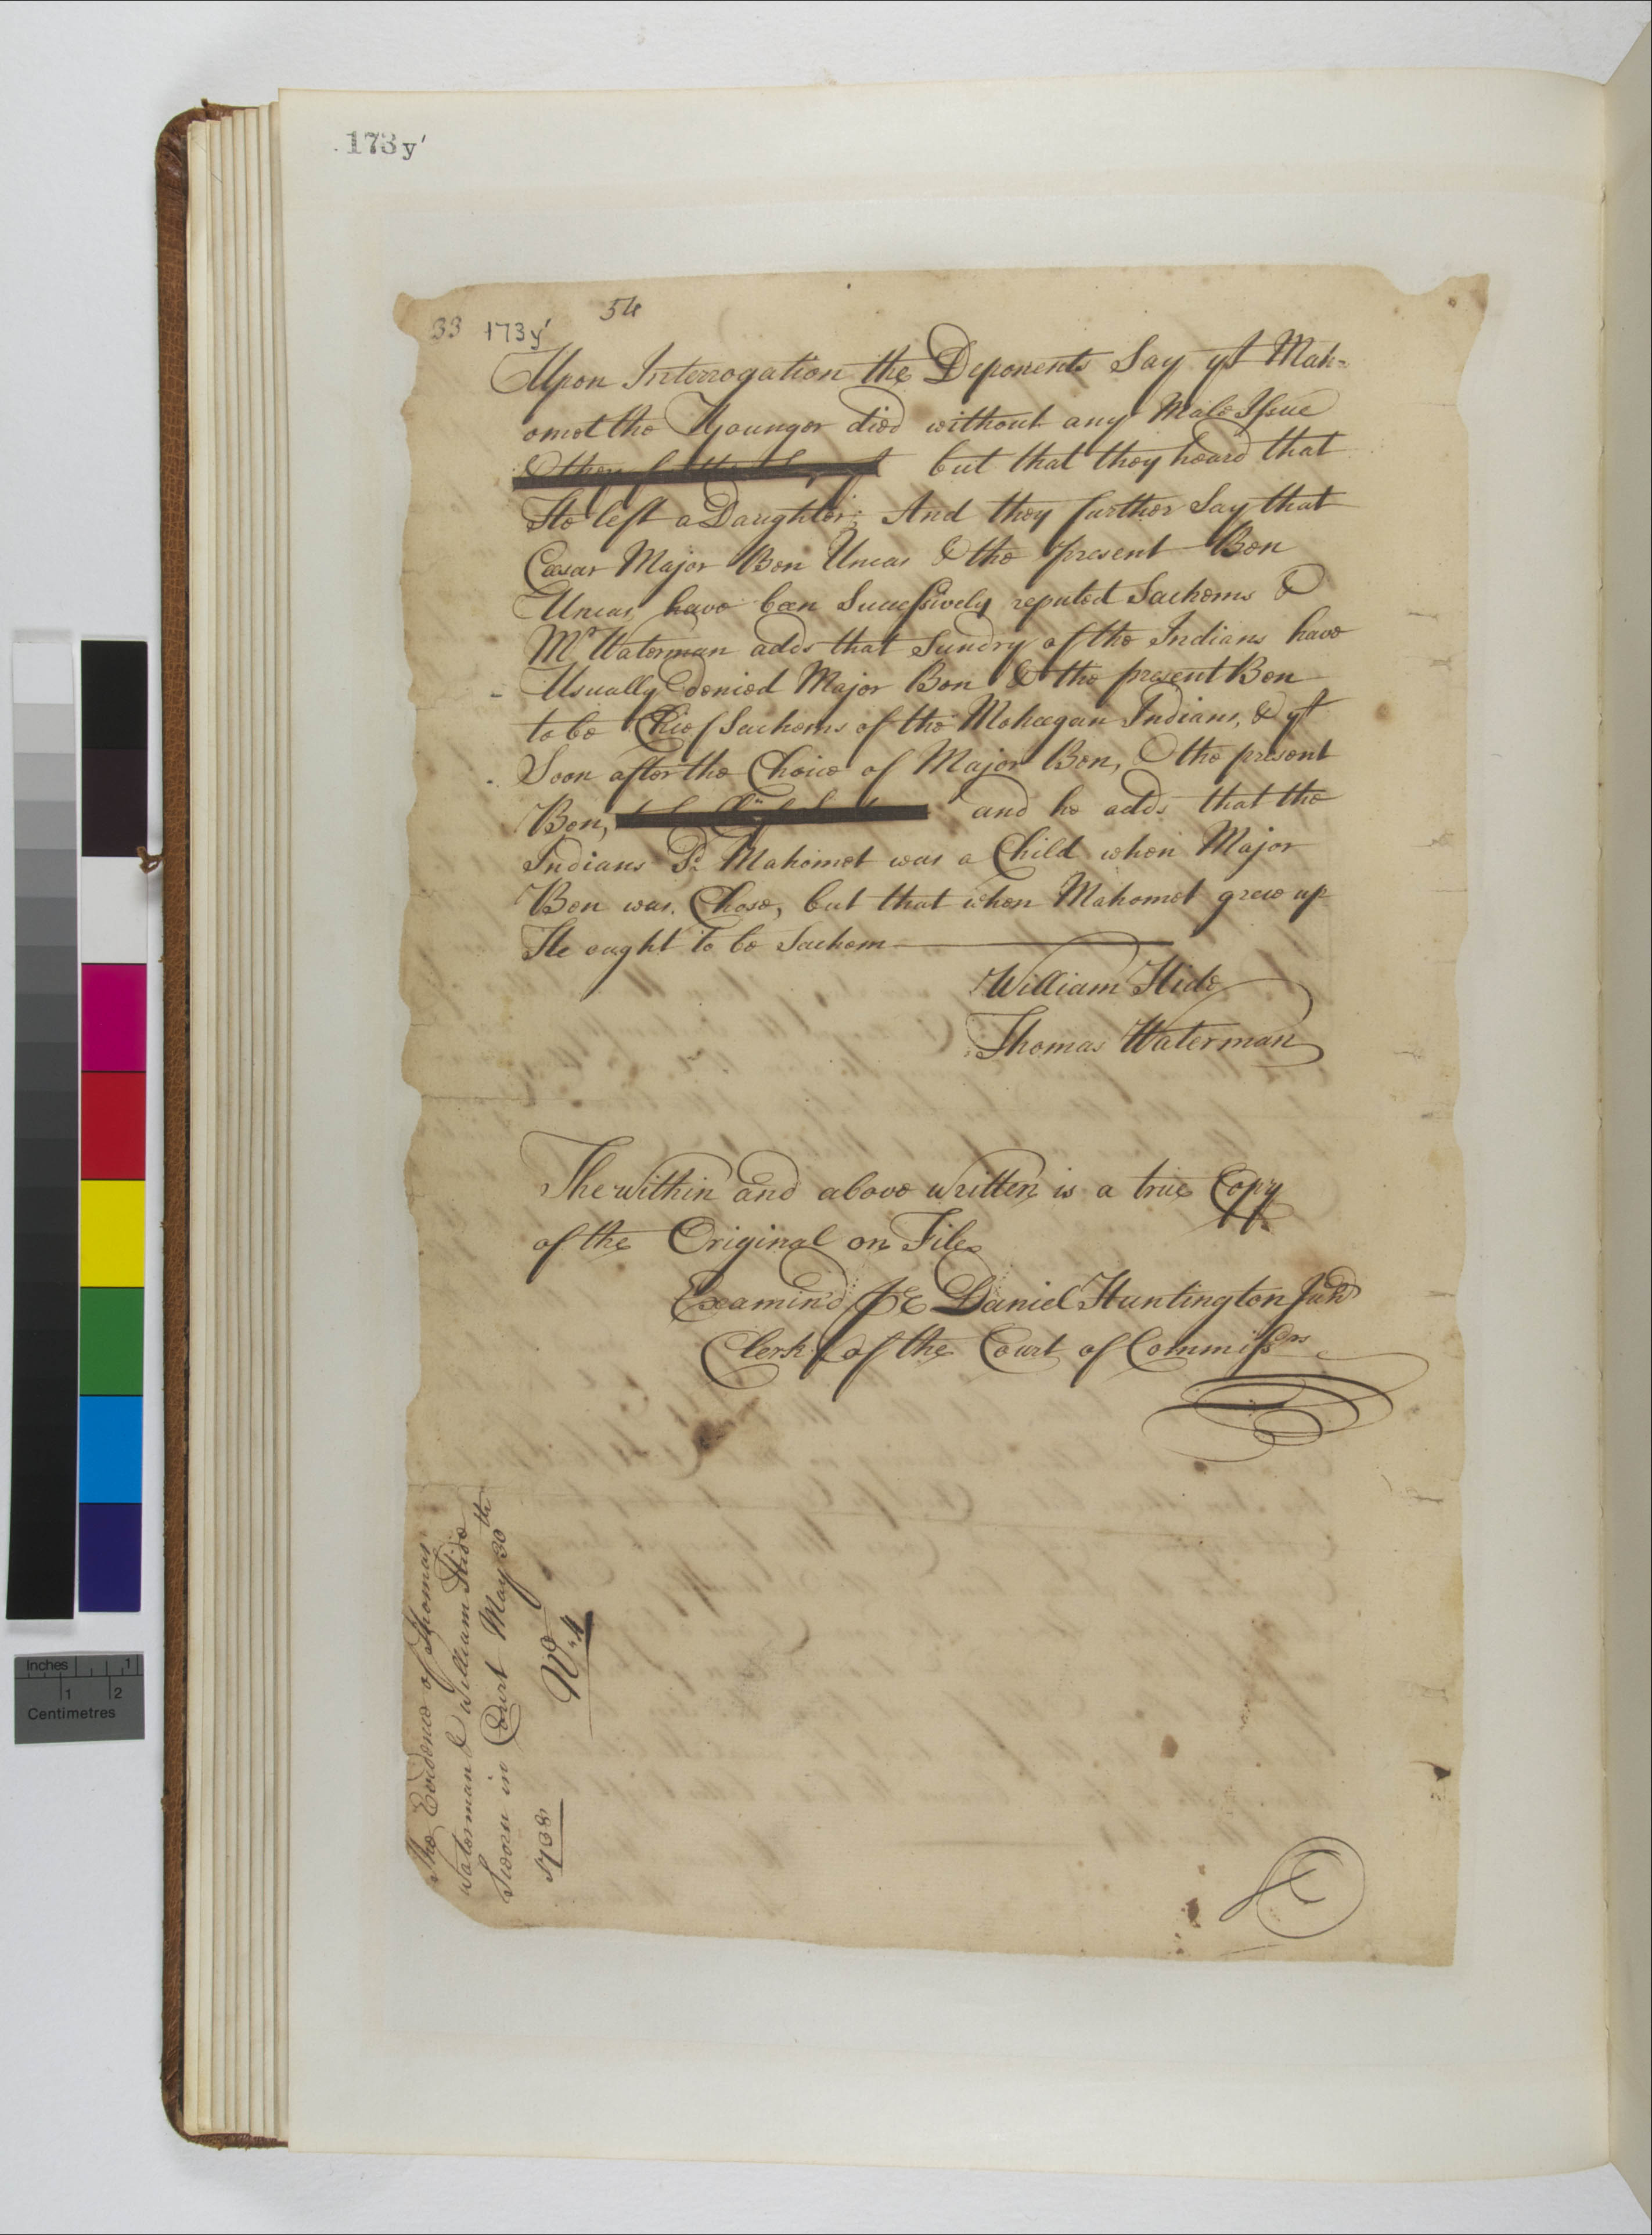 173y'
33 173y' 54
Upon Interrogation the Deponents Say yt Mah=
omet the Younger died without any Male Issue
but that they heard that
He left a Daughter; And they further Say that
Cæsar Major Ben Uncas & the present Ben
Uncas have been Successively reputed Sachems &
Mr Waterman adds that Sundry of the Indians have
Usually denied Major Ben & the present Ben
to be Chief Sachems of the Mohegan Indians, & yt
Soon after the Choice of Major Ben, & the present
Ben, and he adds that the
Indians Sd Mahomet was a Child when Major
Ben was Chose, but that when Mahomet grew up
He ought to be Sachem
William Hide
Thomas Waterman
The within and above written is a true Copy
of the Original on File
Examin'd pr Daniel Huntington Junr
Clerk of the Court of Commissrs
The Evidence of Thomas
Waterman & William Hide
Sworn in Court May 30th
1738
No 4
Inches 1
1 2
Centimetres